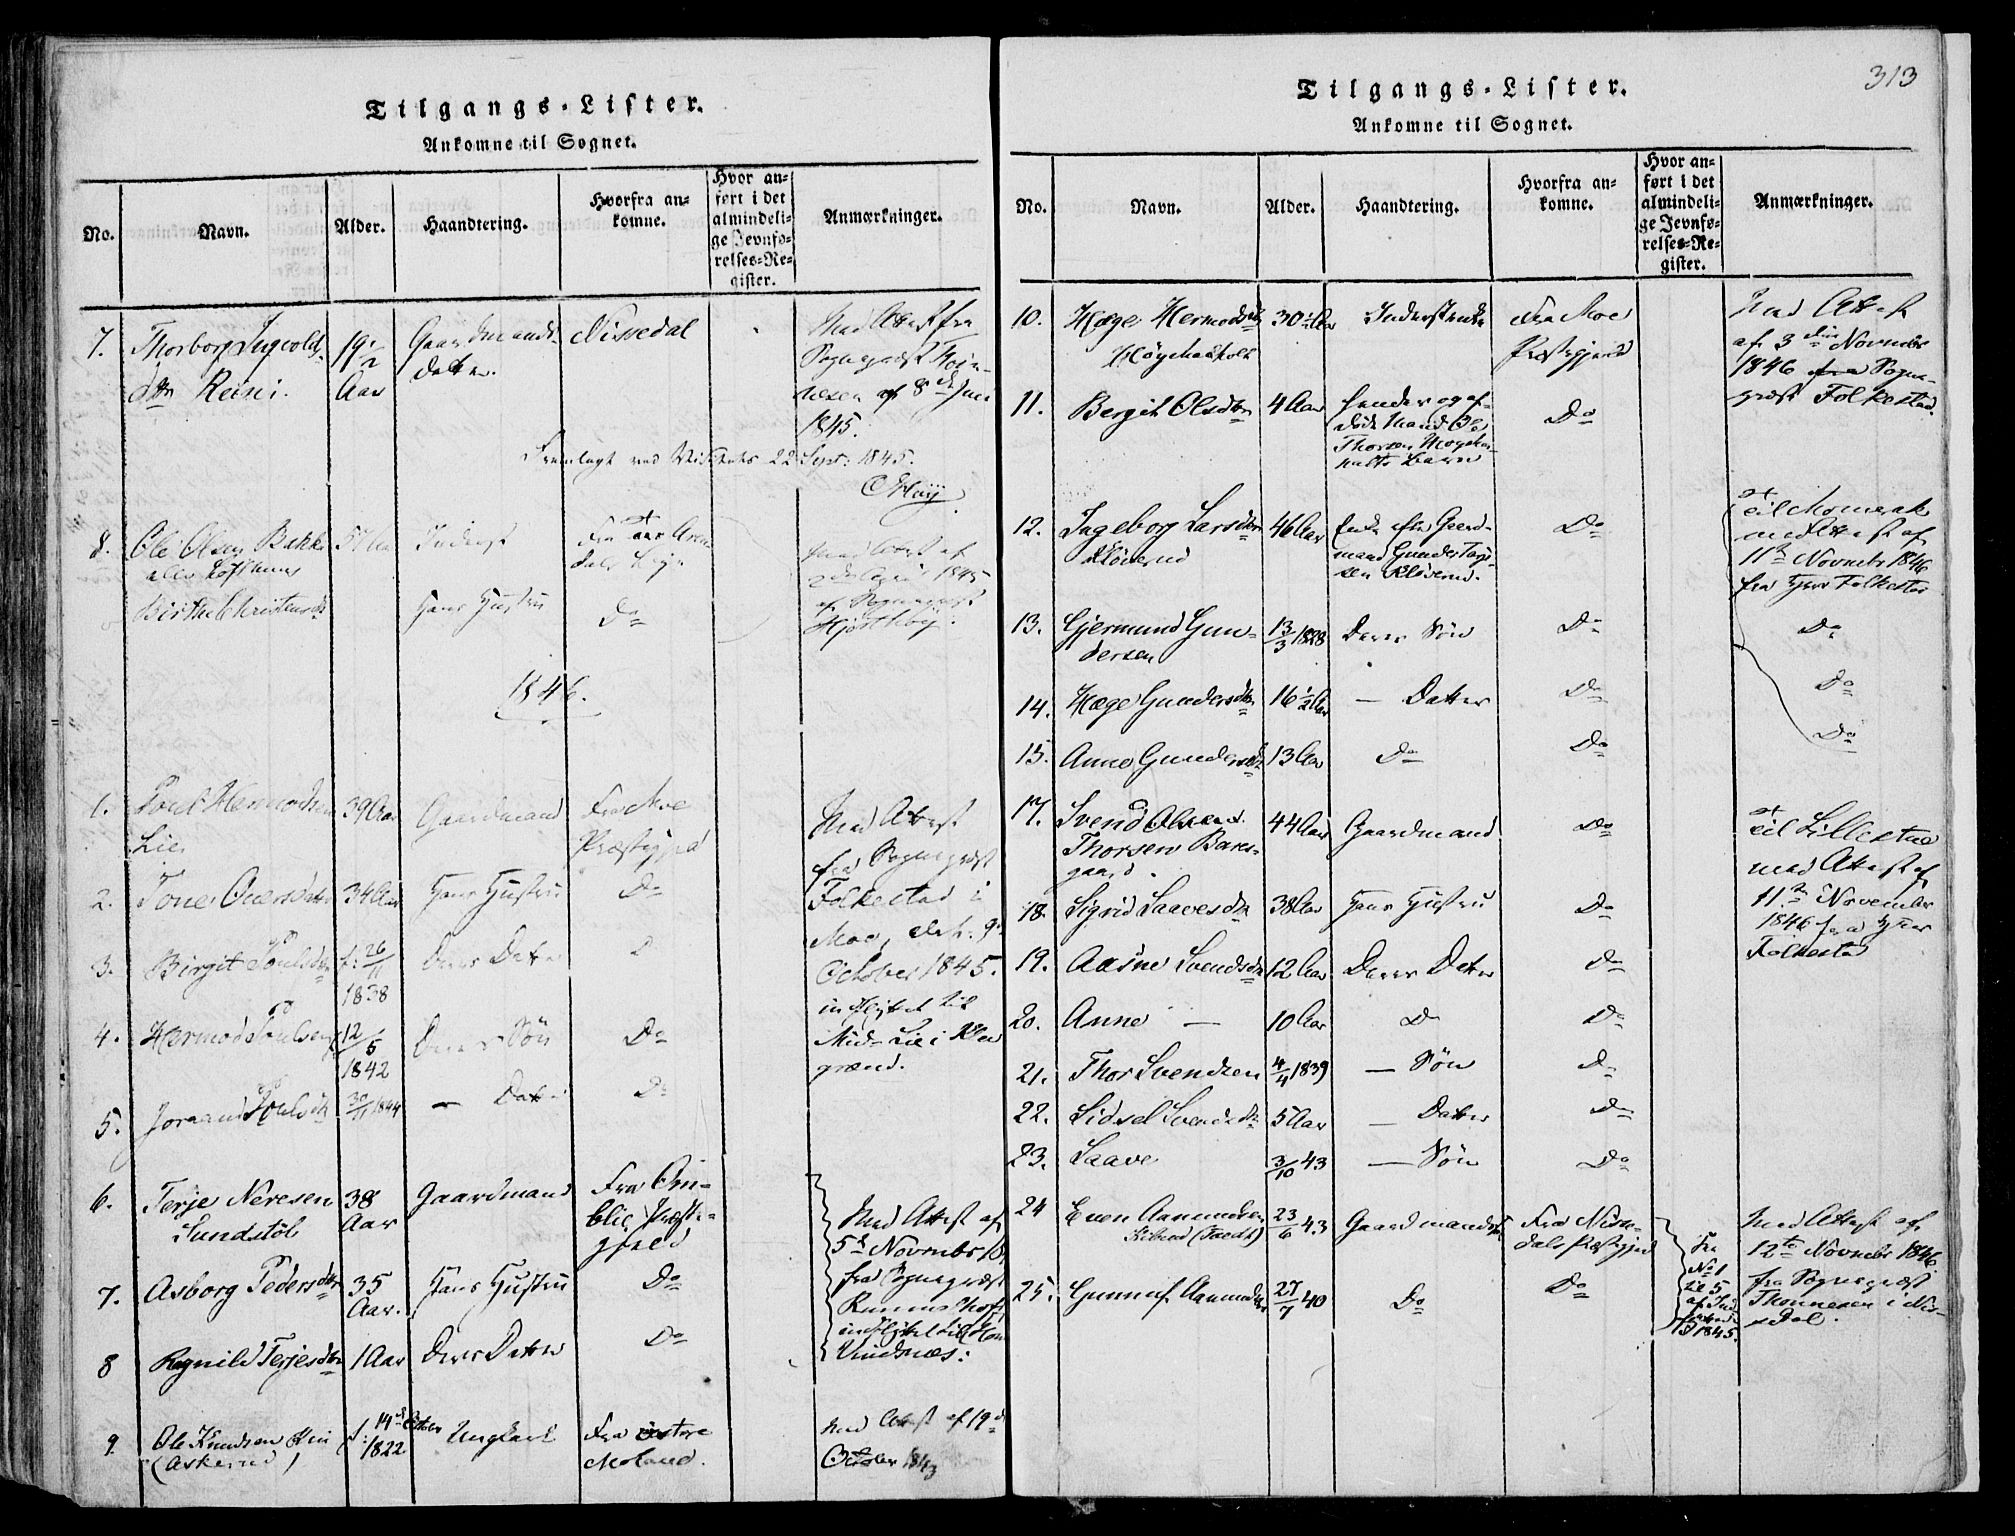 Tilgangs-Lister.
Ankomne til Sognet.
No.
Navn.
Alder.
Haandtering.
Hvorfra ankomne.
Hvor anført i det almindelige Jevnførelses-Register.
Anmærkninger.
7. Thorborg Ingvolds- 19 1/2 Gaardmands- Nissedal Med Attest fra
dtr Reini. Aar datter. Sogneprest
af 8de Juni
1845.
Fremlagt ved Visitats 22 Sept: 1845.
8. Ole Olsen Bakke 57 Aar Inderst Fra
Med Attest af
1845
Birthe Christensdtr Hans Hustru Do
af Sogneprest
1846.
1. Poul Hermodsen 39 Aar Gaardmand Fra Moe Med Attest
Lie. Præstegjeld fra Sogneprest
2. Tone 34 Aar Hans Hustru Do Folkestad i
Moe, dat. 9de
3. Birgit Poulsdtr f. 26/11 1838 Deres Datter October 1845.
indflyttet til
4. Hermod Poulsen 12/5 1842 Deres Søn Do Mid-Lie i
grænd.
5. Joraand Poulsdtr 30/11 1844 — Datter Do
6. Terje Neresen 38 Gaardmand Fra Om-
Sundstøl Aar bliy Præste- Med Attest af
gjeld 5te Novembr
7. Asborg Pedersdtr 35 Hans Hustru Do fra Sogneprest
Aar. indflyttet til
8 Ragnild Terjesdtr 1 Aar Deres Datter Do
9. Ole Knudsen f: 14de October Ungkarl Fra østre Med Attest af 19de
(Askerud) 1822 Moland. October 1843
313
Tilgangs-Lister.
Ankomne til Sognet.
No.
Navn.
Alder.
Haandtering.
Hvorfra ankomne.
Hvor anført i det almindelige Jevnførelses-Register.
Anmærkninger.
10. Hæge Hermodsdtr 30 1/2 Aar Fra Moe Med Attest
Præstegjeld af 3die Novembr
1846 fra Sogne-
11. Bergit Olsdtr 4 Aar hendes og af- Do prest Folkestad.
døde Mand Ole
Thorsen
Barn
12. Ingeborg Larsdtr 46 Aar Enke efter Gaard- Do til Momrak
Kløverud mand Gunder Terje- med Attest af
sen Kløverud. 11te Novembr 1846
fra Hr Folkestad
13. Gjermund Gun- 13/3 1828 Deres Søn Do Do
dersen
14. Hæge Gundersdtr 16 1/2 Aar — Datter Do Do
15. Anne Gundersdtr 13 Aar Do Do Do
17. Svend Olsen 44 Aar Gaardmand Do til Lillestue
Thorsen med Attest af
gaard. 11te November
18. Sigrid Saavesdtr 38 Aar Hans Hustru Do 1846 fra Hr
Folkestad
19. Aasne Svendsdtr 12 Aar Deres Datter Do
20. Anne — 10 Aar Do Do
21. Thor Svendsen 4/4 1839 — Søn Do
22. Sidsel Svendsdtr 5 Aar — Datter Do
23. Saave 3/10 43 — Søn Do
24 Even Aanundsen 23/6 43 Gaardmands Fra Nisse- Fra Med Attest af
dals Præstegjeld No 1 12te Novembr 1846
til 5 fra Sogneprest
25. Gunnuf Aanundsen 27/7 40 Do Do Thonnesen i Nis-
1845. sedal.